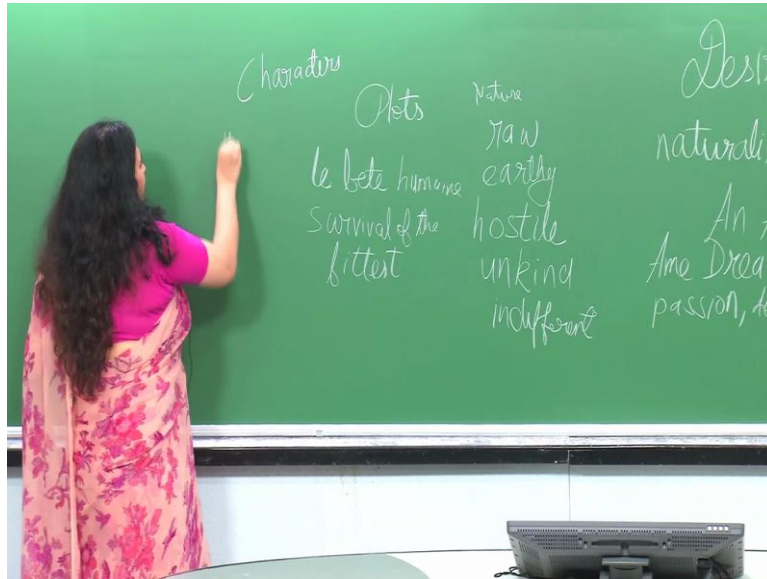 Characters
Plots
le bete humaine
survival of the
fittest
Nature
raw
earthy
hostile
unkind
indifferent
Ame
passion,